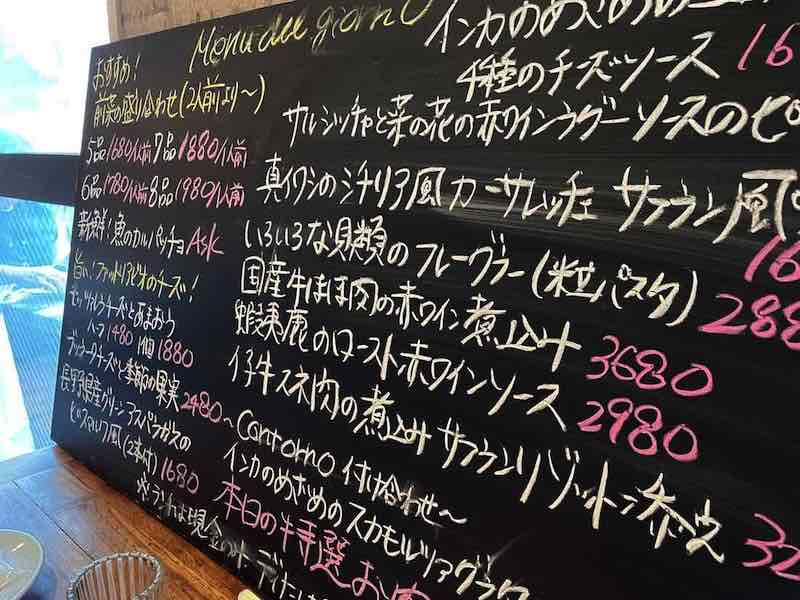 Menu del giorno
おすすめ!
前菜の盛り合わせ(2人前より〜)
5品1680/人前 7品1880/人前
6品1780/人前 8品1980/人前
新鮮!魚のカルパッチョ Ask
旨い!ファットリアビオのチーズ!
モッツァレラチーズとあまおう
ハーフ1480 1個1880
ブッラータチーズと季節の果実 2480
長野県産グリーンアスパラガスの
ビスマルク風(2本付)1680
インカのめざめの
4種のチーズソース
サルシッチャと菜の花の赤ワインラグーソースの
真イワシのシチリア風 カーサレッチェ サフラン風
いろいろな貝類のフレーグラー(粒パスタ)
国産牛ほほ肉の赤ワイン煮込み 3680
蝦夷鹿のロースト赤ワインソース 2980
仔牛スネ肉の煮込み サフランリゾット添え
〜Contorno 付け合わせ〜
インカのめざめのスカモルツァグラタ
本日の特選お
※ランチは現金のみ